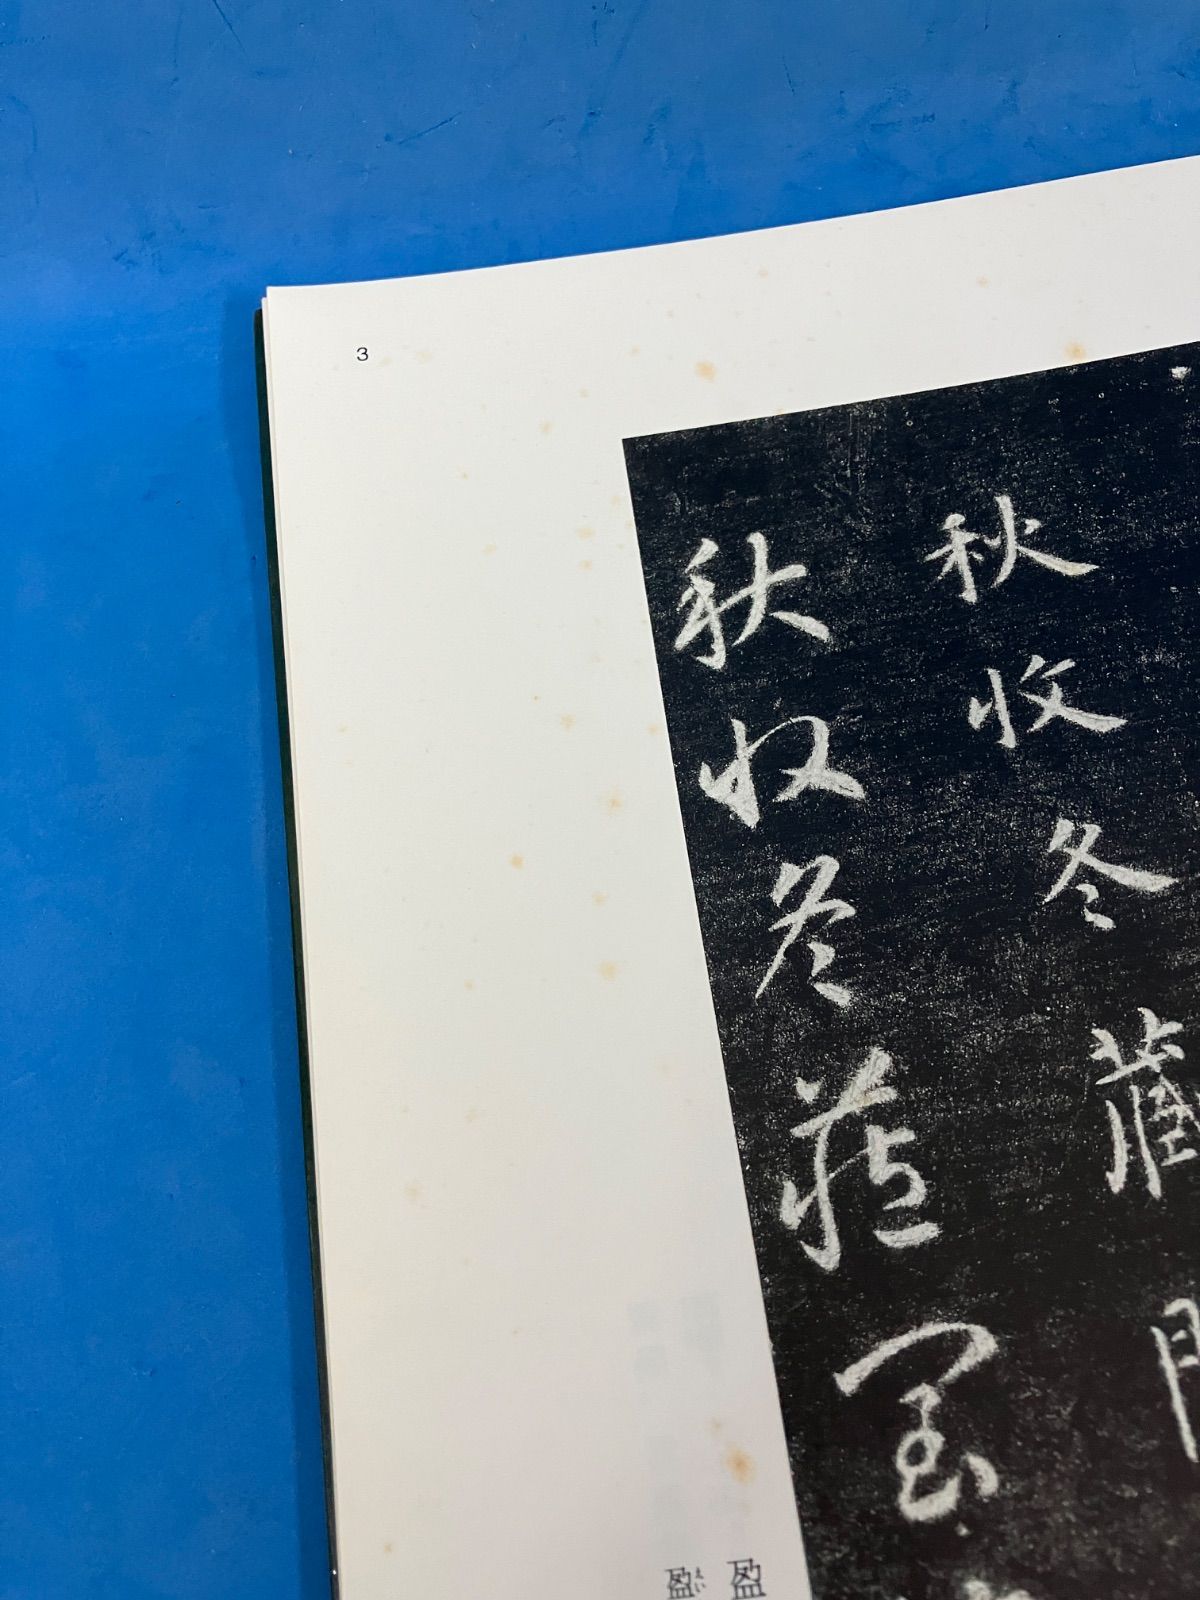 3
秋收冬藏
秋収冬藏閏
盈
盈